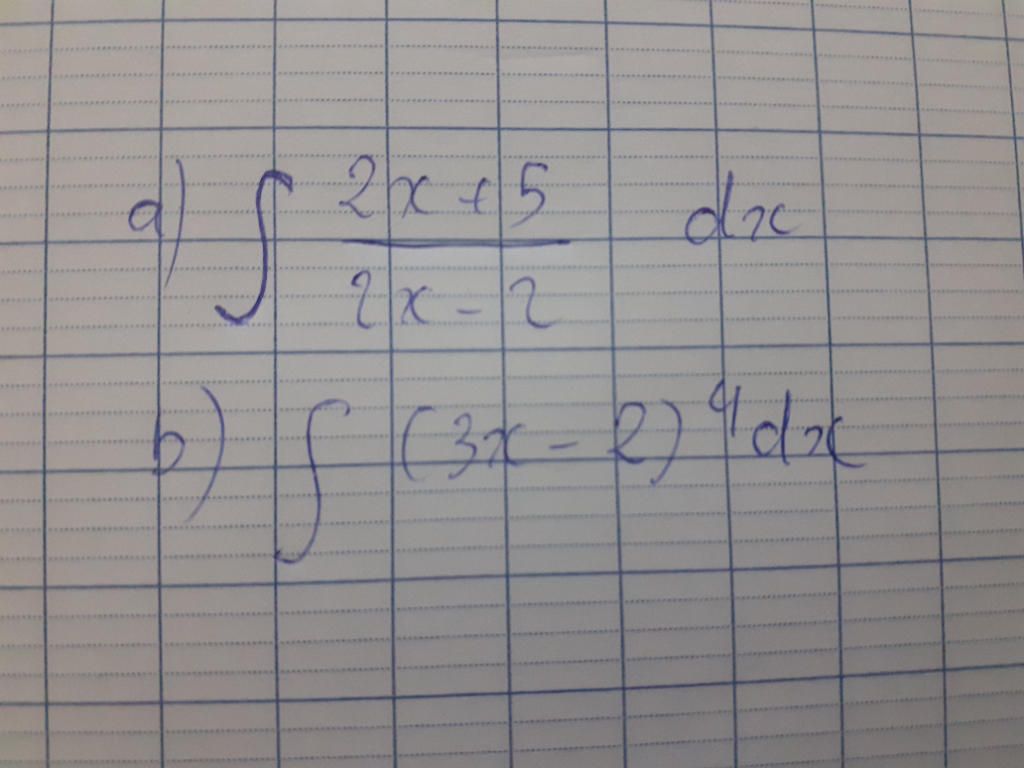 a) ∫ (2x+5)/(2x-2) dx
b) ∫ (3x-2)^4 dx